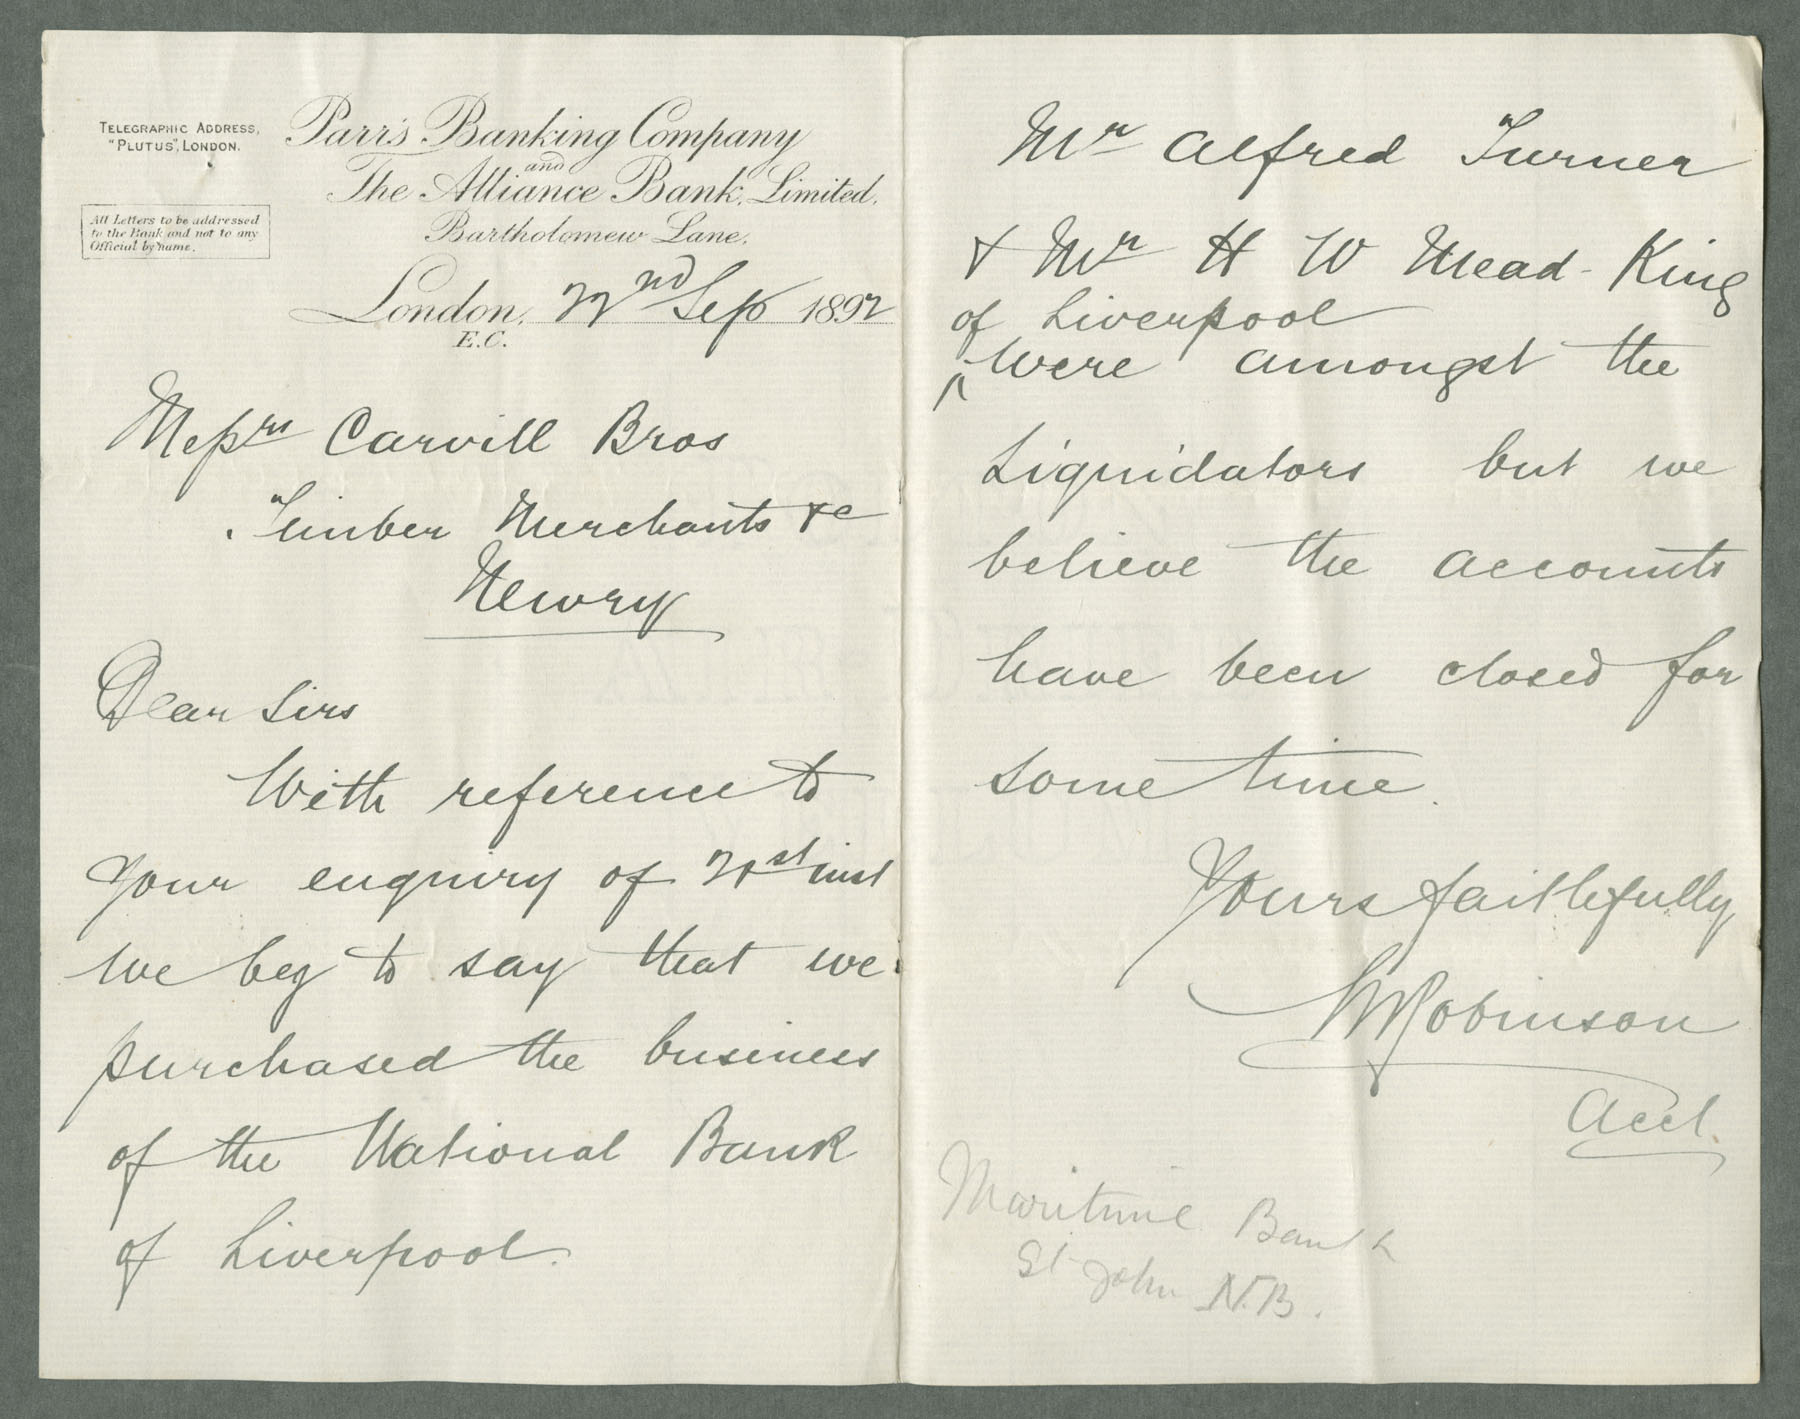 TELEGRAPHIC ADDRESS,
"PLUTUS", LONDON.
All Letters to be addressed
to the Bank and not to any
Official by name.
Parr's Banking Company
and
The Alliance Bank, Limited,
Bartholomew Lane,
London, 22nd Sep 1892
E.C.
Messrs Carvill Bros
Timber Merchants &c
Newry
Dear Sirs
With reference to
your enquiry of 21st inst
we beg to say that we
purchased the business
of the National Bank
of Liverpool.
Mr Alfred Turner
& Mr H W Mead-King
of Liverpool
^ were amongst the
Liquidators but we
believe the accounts
have been closed for
some time.
Yours faithfully
Robinson
Acct.
Maritime Bank
St John N.B.